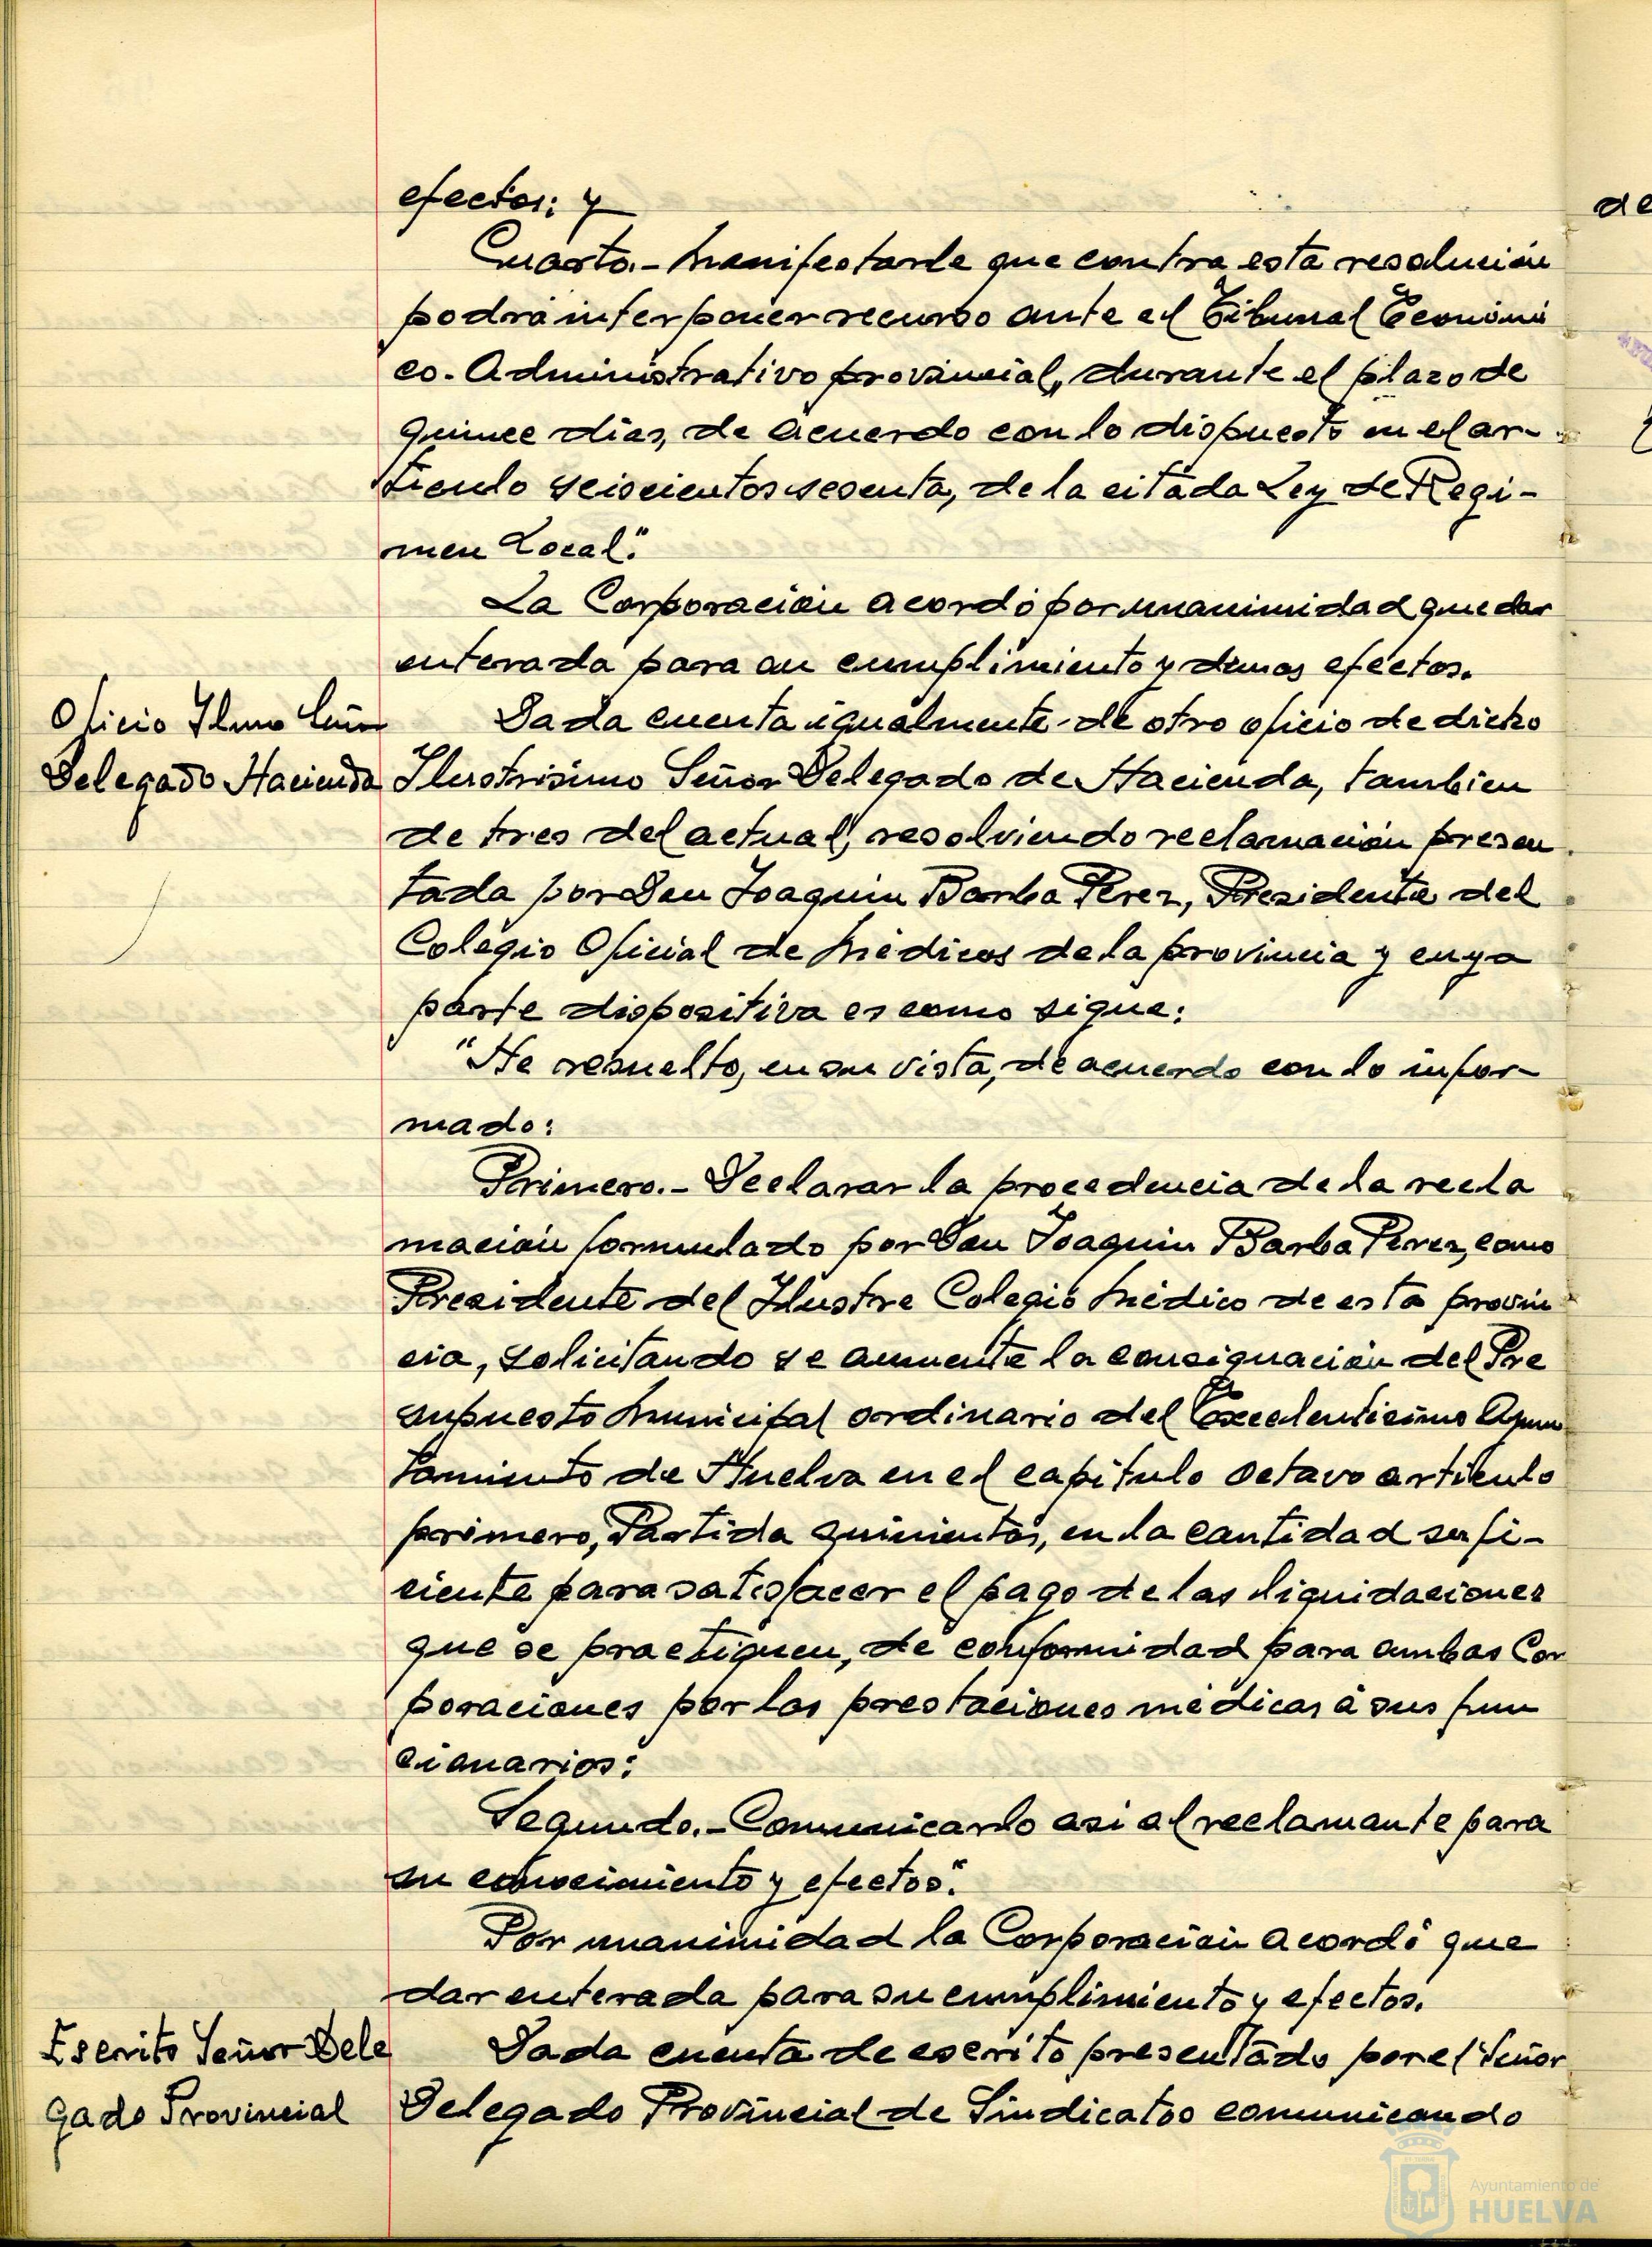 efectos; y
Cuarto.- Manifestarle que contra esta resolución
podrá interponer recurso ante el Tribunal Económi
co-Administrativo provincial, durante el plazo de
quince dias, de acuerdo con lo dispuesto en el ar-
ticulo seiscientos sesenta, de la citada Ley de Regi-
men Local."
La Corporación acordó por unanimidad quedar
enterada para su cumplimiento y demas efectos.
Oficio Ilmo Señor
Delegado Hacienda
Dada cuenta igualmente de otro oficio de dicho
Ilustrisimo Señor Delegado de Hacienda, tambien
de tres del actual, resolviendo reclamación presen
tada por Don Joaquin Barba Perez, Presidente del
Colegio Oficial de Médicos de la provincia y cuya
parte dispositiva es como sigue:
"He resuelto, en su vista, de acuerdo con lo infor-
mado:
Primero.- Declarar la procedencia de la recla
mación formulado por Don Joaquin Barba Perez, como
Presidente del Ilustre Colegio Médico de esta provin
cia, solicitando se aumente la consignación del Pre
supuesto Municipal ordinario del Excelentisimo Ayun
tamiento de Huelva en el capitulo octavo articulo
primero, Partida quinientos, en la cantidad sufi-
ciente para satisfacer el pago de las liquidaciones
que se practiquen, de conformidad para ambas Cor
poraciones por las prestaciones médicas á sus fun
cionarios:
Segundo.- Comunicarlo asi al reclamante para
su conocimiento y efectos".
Por unanimidad la Corporación acordó que
dar enterada para su cumplimiento y efectos.
Escrito Señor Dele
gado Provincial
Dada cuenta de escrito presentado por el Señor
Delegado Provincial de Sindicatos comunicando
de
Ayuntamiento de
HUELVA